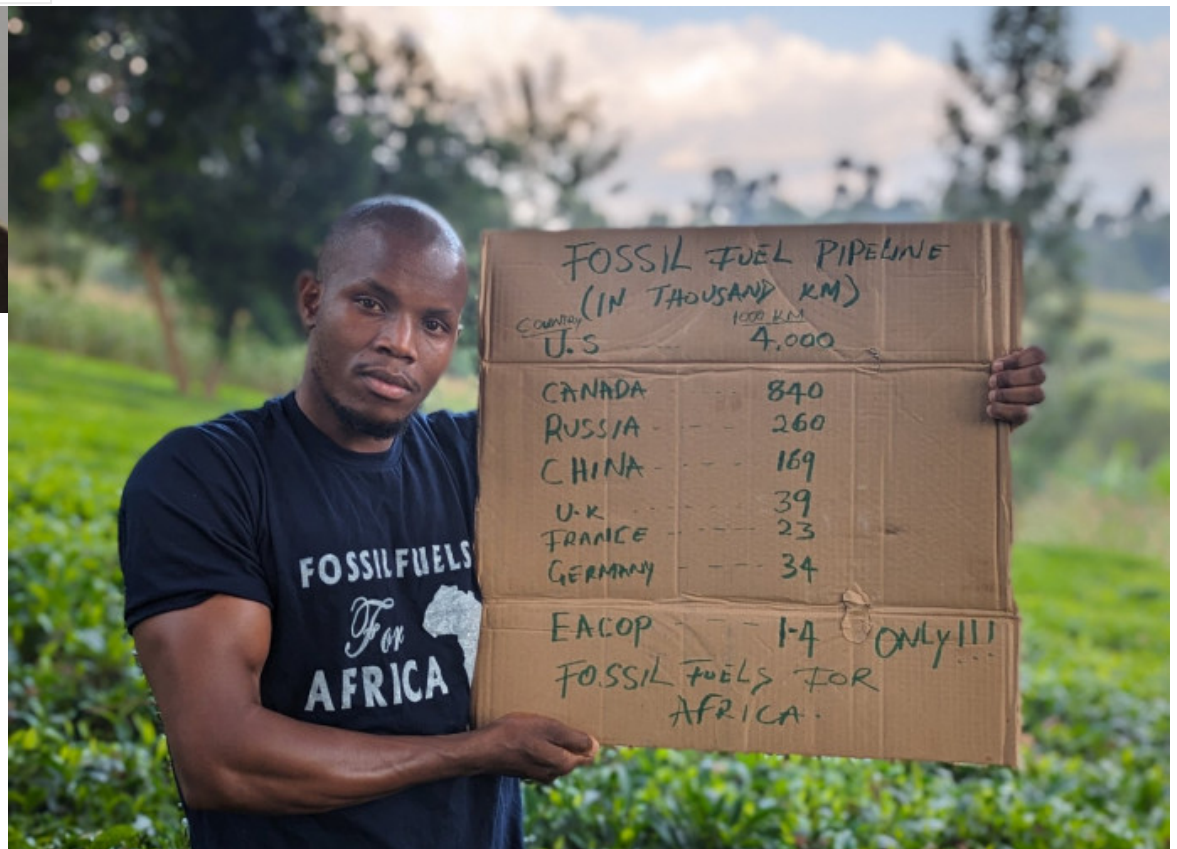 FOSSIL FUEL PIPELINE
(IN THOUSAND KM)
COUNTRY 1000 KM
U.S 4,000
CANADA --- 840
RUSSIA ---- 260
CHINA ---- 169
U.K ---- 39
FRANCE ---- 23
GERMANY ---- 34
EACOP ---- 1.4 ONLY!!!
FOSSIL FUELS FOR
AFRICA.
FOSSIL FUELS
For
AFRICA